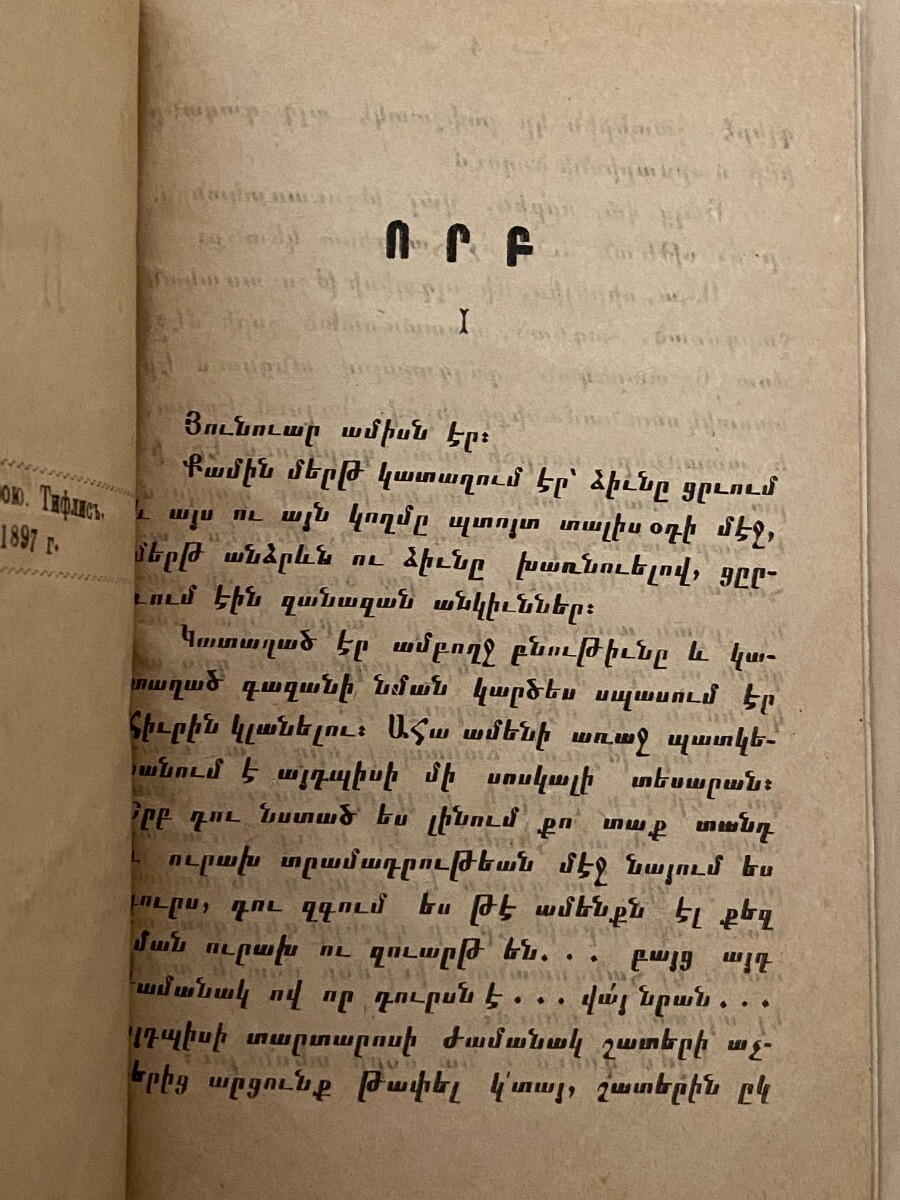 ою. Тифлисъ.
1897 г.
ՈՐԲ
I
Յունուար ամիսն էր։
Քամին մերթ կատաղում էր՝ ձիւնը ցրւում
այս ու այն կողմը պտոյտ տալիս օդի մէջ,
մերթ անձրևն ու ձիւնը խառնուելով, ցըր-
ւում էին զանազան անկիւններ։
Կատաղած էր ամբողջ բնութիւնը և կա-
տաղած գազանի նման կարծես սպասում էր
հիւրին կլանելու։ Ահա ամենի առաջ պատկե-
րանում է այդպիսի մի սոսկալի տեսարան։
Երբ դու նստած ես լինում քո տաք տանդ
ուրախ տրամադրութեան մէջ նայում ես
դուրս, դու զգում ես թէ ամենքն էլ քեզ
նման ուրախ ու զուարթ են... բայց այդ
ժամանակ ով որ դուրսն է... վա՜յ նրան...
այդպիսի տարտարոսի ժամանակ շատերի աչ-
երից արցունք թափել կ՚տայ, շատերին ըկ